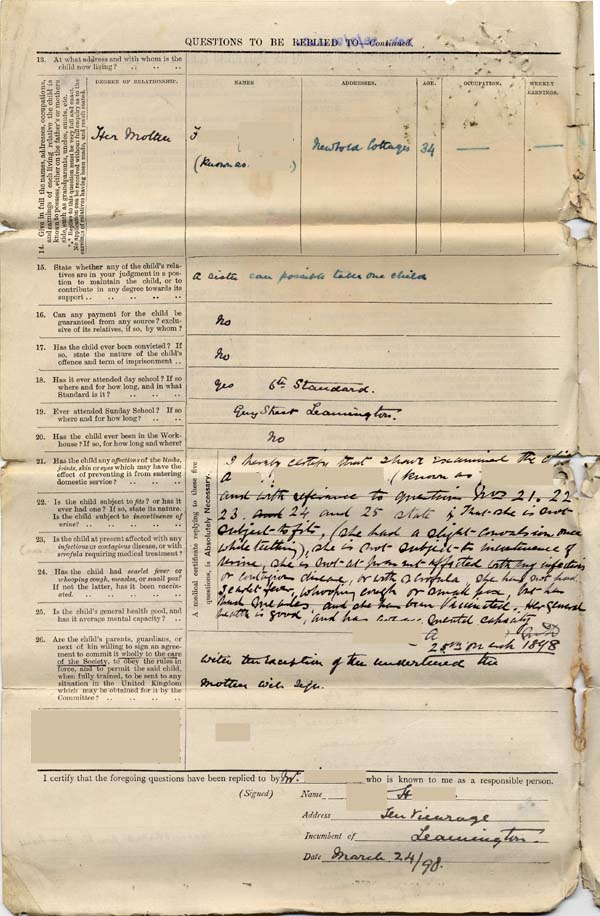 QUESTIONS TO BE REPLIED TO—Continued.
13. At what address and with whom is the
child now living? .. .. ..
14. Give in full the names, addresses, occupations,
and earnings of each living relative the child is
known to possess, either on the father's or mother's
side, such as grandparents, uncles, aunts, etc.
DEGREE OF RELATIONSHIP.
NAMES
ADDRESSES.
AGE.
OCCUPATION.
WEEKLY
EARNINGS.
Her Mother
(Known as )
Newbold Cottages
34
—
—
15. State whether any of the child's rela-
tives are in your judgment in a posi-
tion to maintain the child, or to
contribute in any degree towards its
support .. .. .. ..
A sister can possible take one child
16. Can any payment for the child be
guaranteed from any source? exclu-
sive of its relatives, if so, by whom?
No
17. Has the child ever been convicted? If
so, state the nature of the child's
offence and term of imprisonment ..
No
18. Has it ever attended day school? If so
where and for how long, and in what
Standard is it? .. .. ..
Yes 6th Standard.
19. Ever attended Sunday School? If so
where and for how long? .. ..
Guy Street Leamington.
20. Has the child ever been in the Work-
house? If so, for how long and where?
No
21. Has the child any affections of the limbs,
joints, skin or eyes which may have the
effect of preventing it from entering
domestic service? .. .. ..
22. Is the child subject to fits? or has it
ever had one? If so, state its nature.
Is the child subject to incontinence of
urine? .. .. .. ..
23. Is the child at present affected with any
infectious or contagious disease, or with
scrofula requiring medical treatment?
24. Has the child had scarlet fever or
whooping cough, measles, or small pox?
If not the latter, has it been vaccin-
ated. .. .. .. ..
25. Is the child's general health good, and
has it average mental capacity? ..
A medical certificate replying to these five
questions, is Absolutely Necessary.
I hereby certify that I have examined the child
A (Known as
and with reference to questions Nos 21. 22
23. 24 and 25 state that she is not
subject to fits, (she had a slight convulsion once
while teething), she is not subject to incontinence of
urine, she is not at present affected with any infectious
or contagious disease, or with scrofula. She has not had
scarlet fever, whooping cough or small pox, but has
had measles and she has been vaccinated. Her general
health is good, and has mental capacity
A
28th March 1898
26. Are the child's parents, guardians, or
next of kin willing to sign an agree-
ment to commit it wholly to the care
of the Society, to obey the rules in
force, and to permit the said child,
when fully trained, to be sent to any
situation in the United Kingdom
which may be obtained for it by the
Committee? .. .. .. ..
With the exception of the underlined the
Mother will sign.
I certify that the foregoing questions have been replied to by Mr. who is known to me as a responsible person.
(Signed) Name H
Address Vicarage
Incumbent of Leamington.
Date March 24/98.